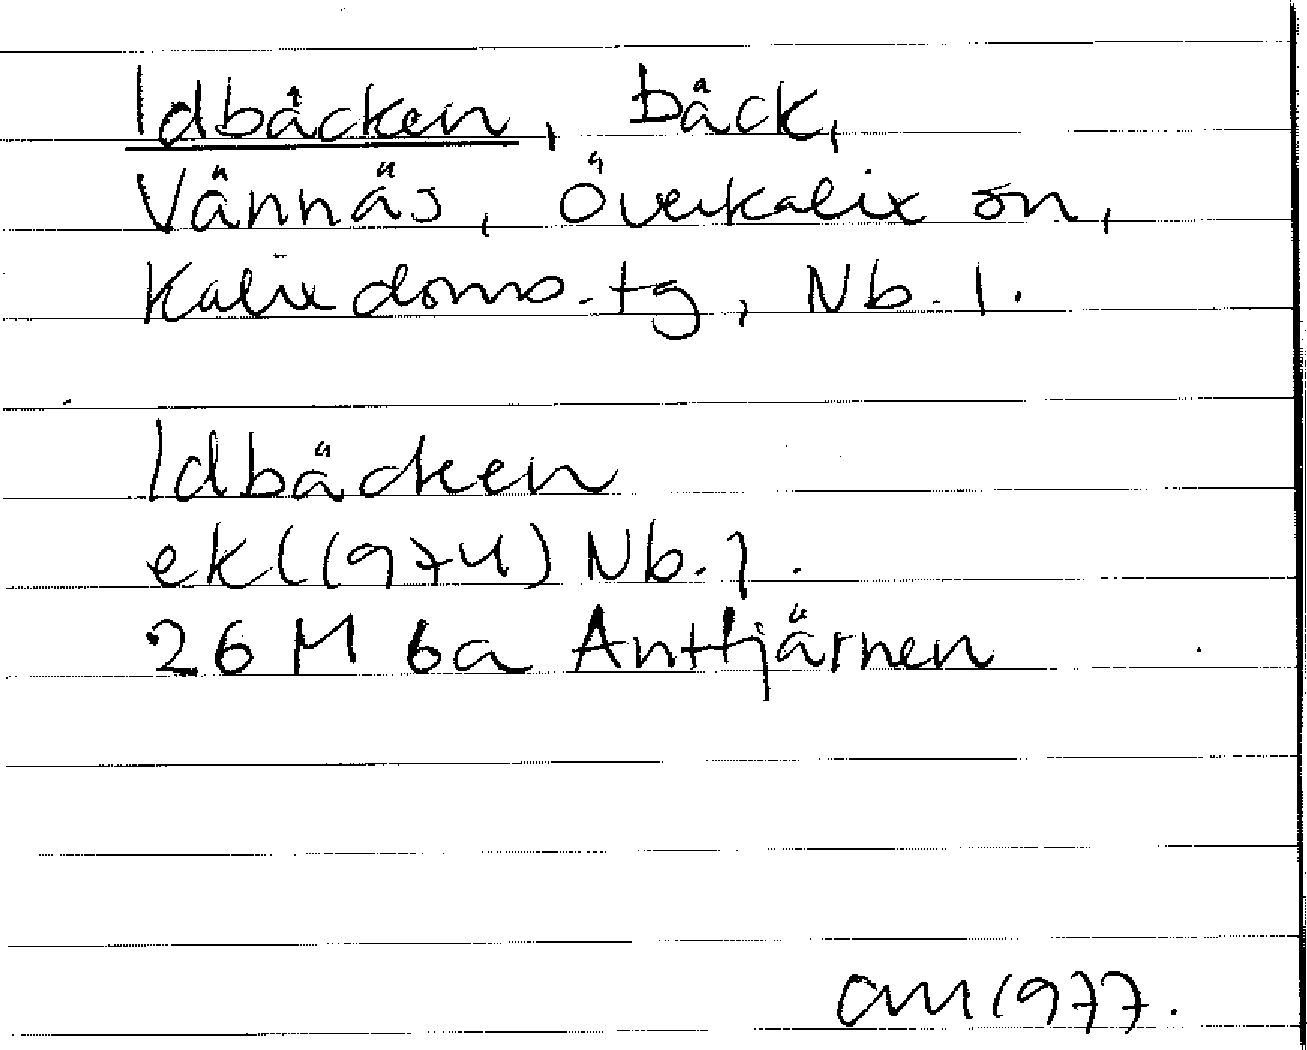 Idbäcken, bäck,
Vännäs, Överkalix sn,
Kalix doms.tg, Nb. l.
Idbäcken
ekl (1974) Nb. l.
26 M 6a Anttjärnen
am 1977.